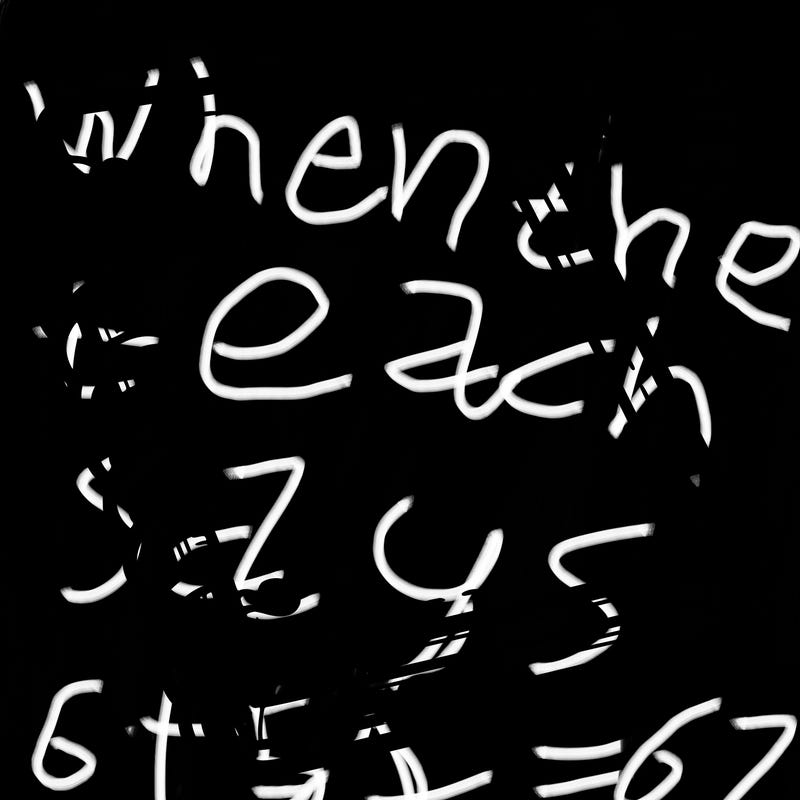 when the
teach
says
6 = 67